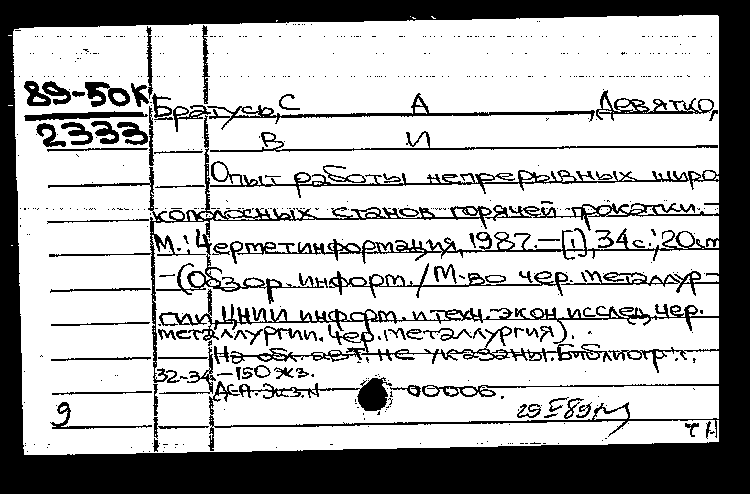 89-50К
2333
Братусь, С А , Девятко,
В И
Опыт работы непрерывных широ
кополосных станов горячей прокатки. –
М.: Черметинформация, 1987. – [1], 34с.; 20см
– (Обзор. информ. / М-во чер. металлур-
гии, ЦНИИ информ. и техн.-экон. исслед. чер.
металлургии. Чер. металлургия).
На обл. авт. не указаны. Библиогр.: с.
32-34 – 150 экз.
ДСП. Экз. N 00006.
9